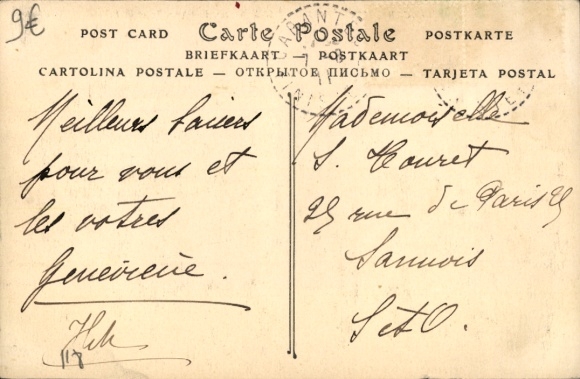 9€
POST CARD Carte Postale POSTKARTE
BRIEFKAART — POSTKAART
CARTOLINA POSTALE — ОТКРЫТОЕ ПИСЬМО — TARJETA POSTAL
Meilleurs baisers
pour vous et
les votres
Geneviève.
Mademoiselle
S. Houret
25 rue de Paris 25
Sannois
S et O.